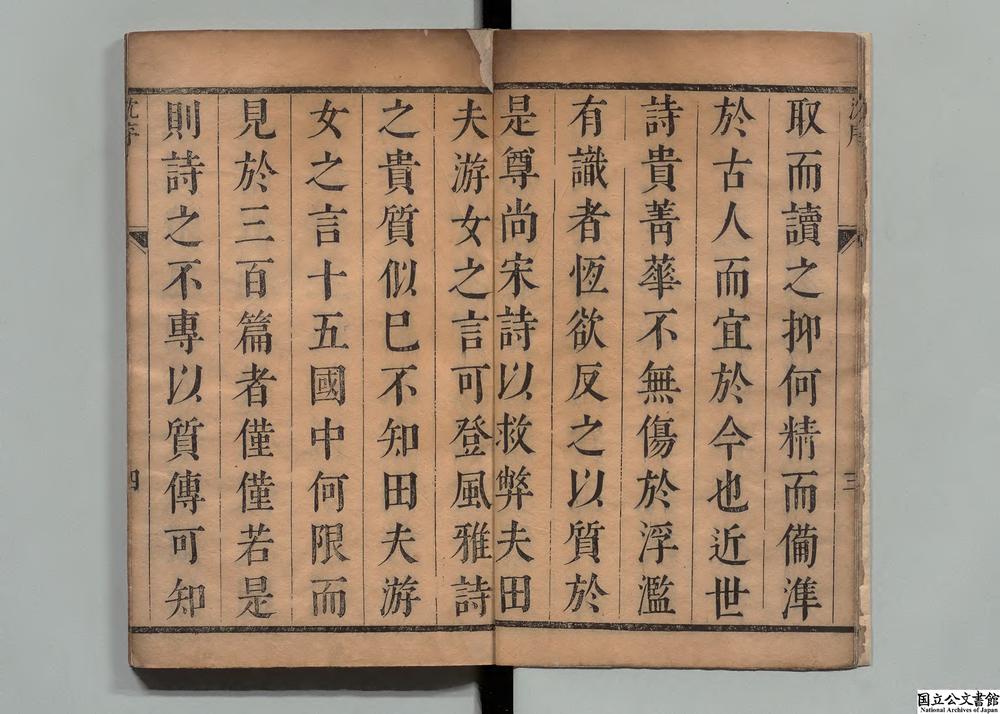 沈序
三
取而讀之抑何精而備準
於古人而宜於今也近世
詩貴菁華不無傷於浮濫
有識者恆欲反之以質於
是尊尚宋詩以救弊夫田
夫游女之言可登風雅詩
之貴質似已不知田夫游
女之言十五國中何限而
見於三百篇者僅僅若是
則詩之不專以質傳可知
沈序
四
国立公文書館
National Archives of Japan